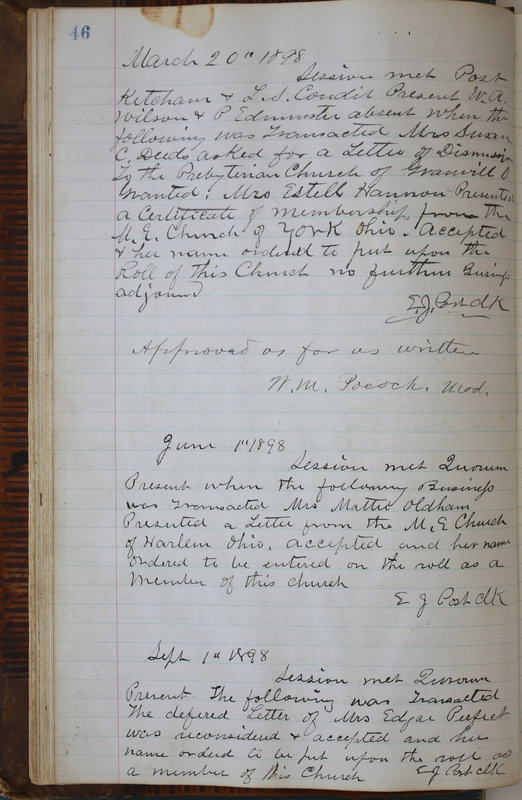 46
March 20th 1898
Session met Post
Ketcham & L. S. Condit Present W. A.
Wilson & P Edminster absent when the
following was Transacted Mrs Susan
C. Deeds asked for a Letter of Dismission
to the Presbyterian Church of Granvill O
Granted: Mrs Estell Hannon Presented
a Certificate of membership from the
M. E. Church of York Ohio. Accepted
& her name ordered to put upon the
Roll of this Church no further Busings
adjound
E. J. Post clk
Approved as far as written
W. M. Pocock. Mod.
June 1st 1898
Session met Quorum
Present when the following Business
was Transacted Mrs Mattie Oldham
Presented a Letter from the M. E Church
of Harlem Ohio. accepted and her name
ordered to be entered on the roll as a
Member of this church
E J Post clk
Sept 1st 1898
Session met Quorum
Present The following was Transacted
The defered Letter of Mrs Edgar Perfect
was reconsidered & accepted and her
name orded to be put upon the roll as
a member of this Church E J Post clk